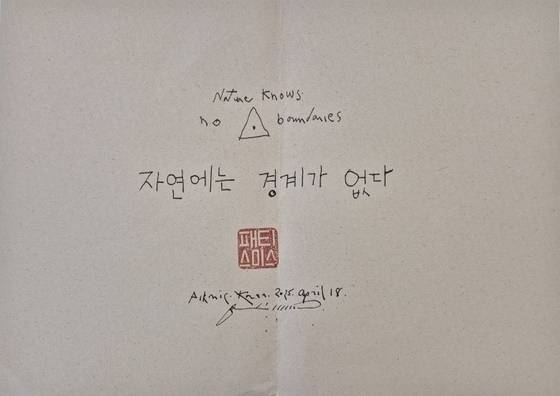 Nature Knows
no boundaries
자연에는 경계가 없다
패티
스미스
2025. april 18.